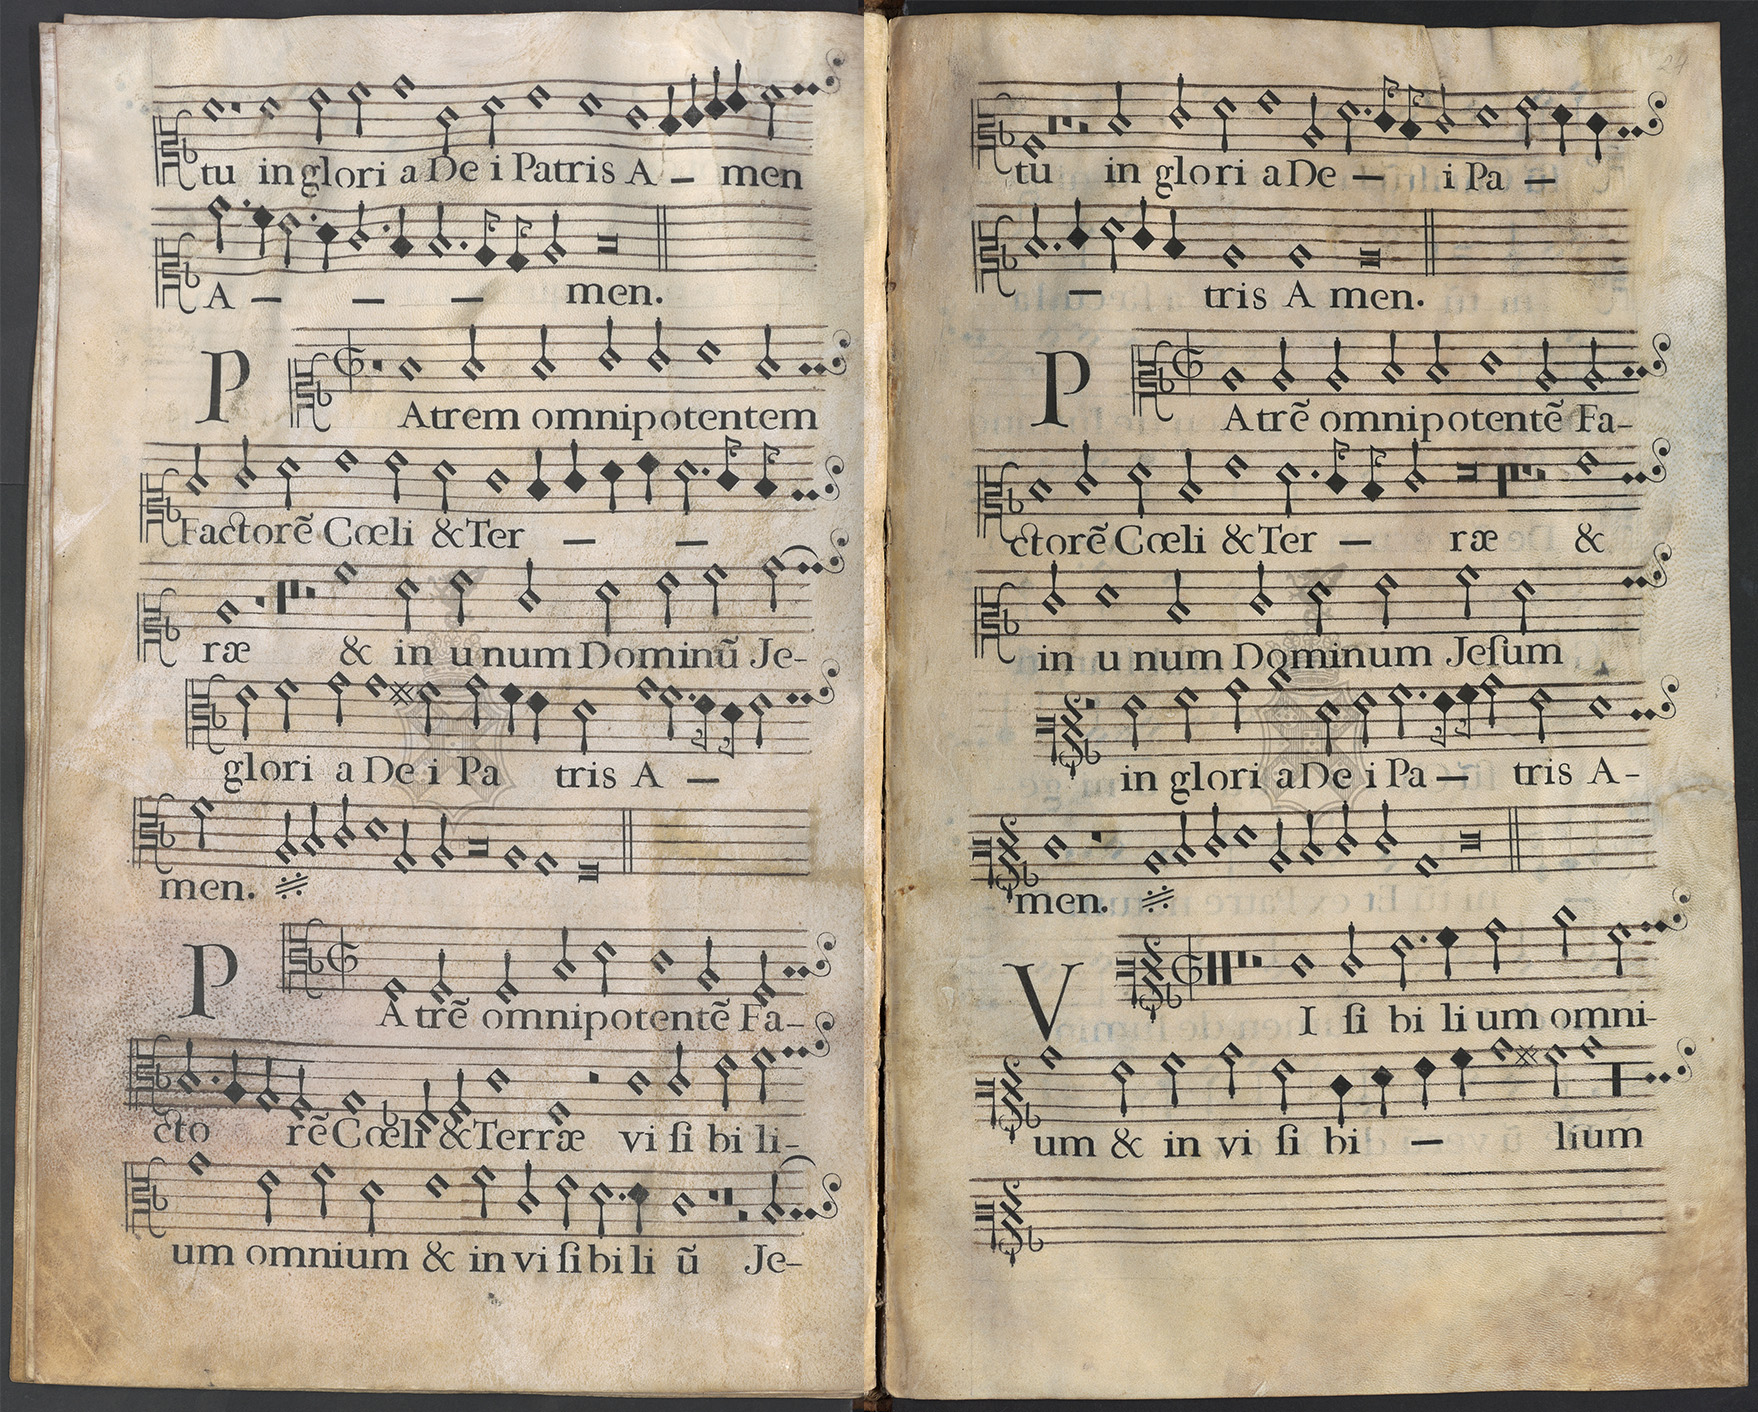 tu in glori a De i Patris A — men
A — — — men.
P Atrem omnipotentem
Factorẽ Cœli & Ter — —
ræ & in unum Dominũ Je-
glori a De i Pa tris A —
men.
P A trẽ omnipotentẽ Fa-
cto rẽ Cœli & Terræ vi ſi bi li-
um omnium & in vi ſi bi li ũ Je-
24
tu in glori a De — i Pa —
— tris A men.
P Atrẽ omnipotentẽ Fa-
ctorẽ Cœli & Ter — ræ &
in u num Dominum Jeſum
in glori a De i Pa — tris A-
men.
V I ſi bi li um omni-
um & in vi ſi bi — lium